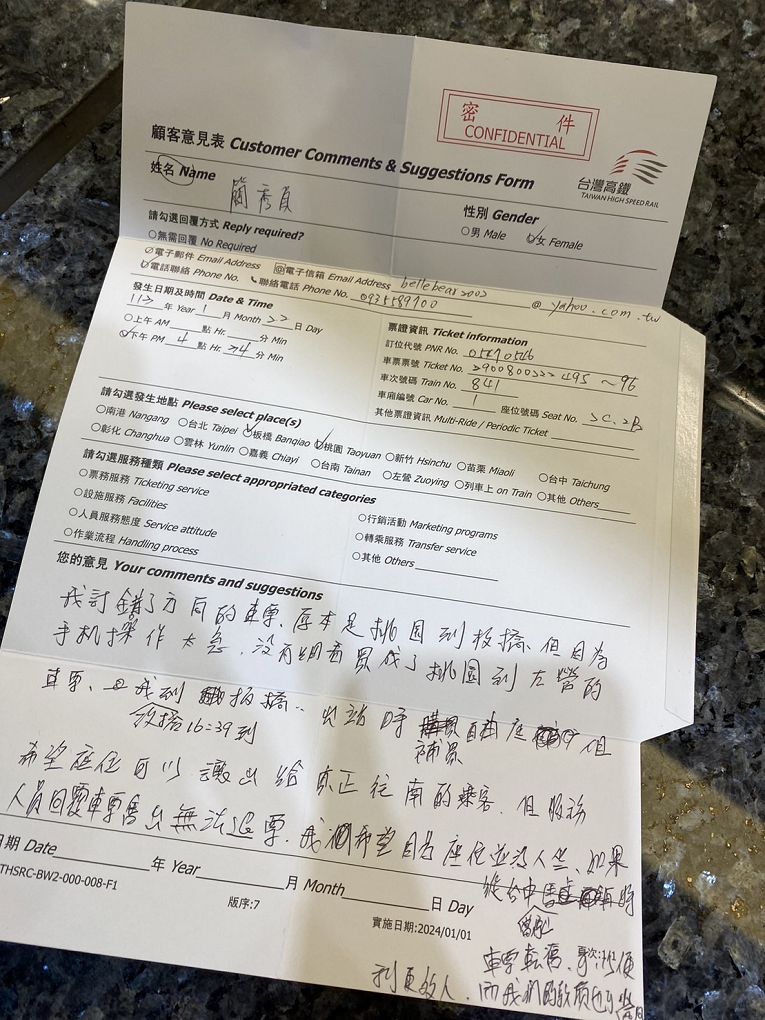 密 件
CONFIDENTIAL
顧客意見表 Customer Comments & Suggestions Form
台灣高鐵
TAIWAN HIGH SPEED RAIL
姓名 Name 簡秀貞
性別 Gender
○男 Male ○女 Female
請勾選回覆方式 Reply required?
○無需回覆 No Required
○電子郵件 Email Address @電子信箱 Email Address bellebear2002 @ yahoo.com.tw
○電話聯絡 Phone No. 聯絡電話 Phone No. 0935589700
發生日期及時間 Date & Time
113 年 Year 1 月 Month 22 日 Day
○上午 AM 點 Hr. 分 Min
○下午 PM 4 點 Hr. 24 分 Min
票證資訊 Ticket information
訂位代號 PNR No.
車票票號 Ticket No. 495 ~ 96
車次號碼 Train No. 841
車廂編號 Car No. 1 座位號碼 Seat No. 2C. 2B
其他票證資訊 Multi-Ride / Periodic Ticket
請勾選發生地點 Please select place(s)
○南港 Nangang ○台北 Taipei ○板橋 Banqiao ○桃園 Taoyuan ○新竹 Hsinchu ○苗栗 Miaoli ○台中 Taichung
○彰化 Changhua ○雲林 Yunlin ○嘉義 Chiayi ○台南 Tainan ○左營 Zuoying ○列車上 on Train ○其他 Others
請勾選服務種類 Please select appropriated categories
○票務服務 Ticketing service
○設施服務 Facilities
○人員服務態度 Service attitude
○作業流程 Handling process
○行銷活動 Marketing programs
○轉乘服務 Transfer service
○其他 Others
您的意見 Your comments and suggestions
我訂錯了方向的車票、原本是桃園到板橋、但因為
手机操作太急、沒有細看買成了桃園到左營的
車票、我到板橋.. 出站時 補票 自由座 但
改搭16:39到
希望座位可以讓出給真正往南的乘客、但服務
人員回覆車票售出無法退票、我們希望因為座位並沒人坐、如果
從台中 時
車票轉賣、
利更多人、而我們的款項也
日期 Date 年 Year 月 Month 日 Day
THSRC-BW2-000-008-F1
版序:7
實施日期:2024/01/01